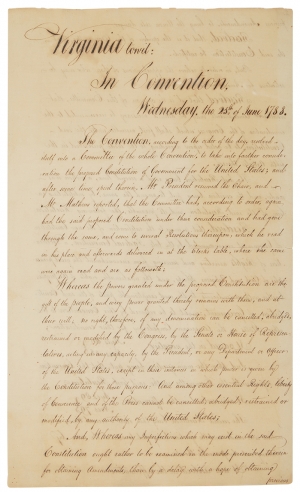 Virginia towit:
In Convention,
Wednesday, the 25th of June 1788.
The Convention, according to the order of the day, resolved
itself into a Committee of the whole Convention, to take into farther consider-
ation the proposed Constitution of Government for the United States; and
after some time spent therein, Mr. President resumed the Chair, and
Mr. Mathews reported, that the Committee had, according to order, again
had the said proposed Constitution under their consideration and had gone
through the same, and come to several Resolutions thereupon, which he read
in his place and afterwards delivered in at the Clerks table, where the same
were again read and are as followeth:
Whereas the powers granted under the proposed Constitution are the
gift of the people, and every power not granted thereby remains with them, and at
their will, no right, therefore, of any denomination can be cancelled, abridged,
restrained or modified by the Congress, by the Senate or House of Represen-
tatives, acting in any capacity, by the President, or any Department or Officer
of the United States, except in those instances in which power is given by
the Constitution for those purposes: And among other essential Rights, liberty
of Conscience and of the Press cannot be cancelled, abridged, restrained or
modified by any authority of the United States;
And, Whereas any Imperfections which may exist in the said
Constitution ought rather to be examined in the mode prescribed therein
for obtaining Amendments, than by a delay with a hope of obtaining
previous